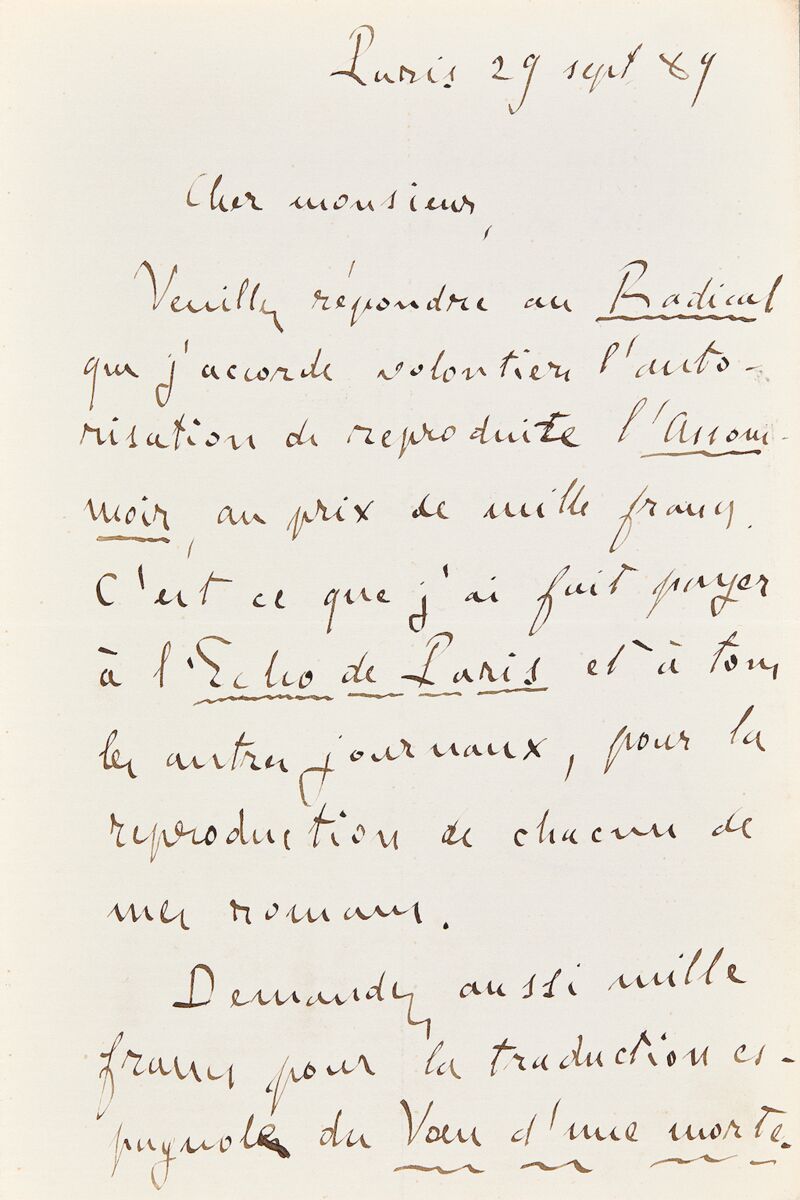 Paris 29 sept 89
Cher monsieur,
Veuillez répondre au Radical
que j'accorde volontiers l'auto-
risation de reproduire l'Assom-
moir, au prix de mille francs.
C'est ce que j'ai fait payer
à l'Echo de Paris et à tous
les autres journaux, pour la
reproduction de chacun de
mes romans.
Demandez aussi mille
francs pour la traduction es-
pagnole du Vœu d'une morte.